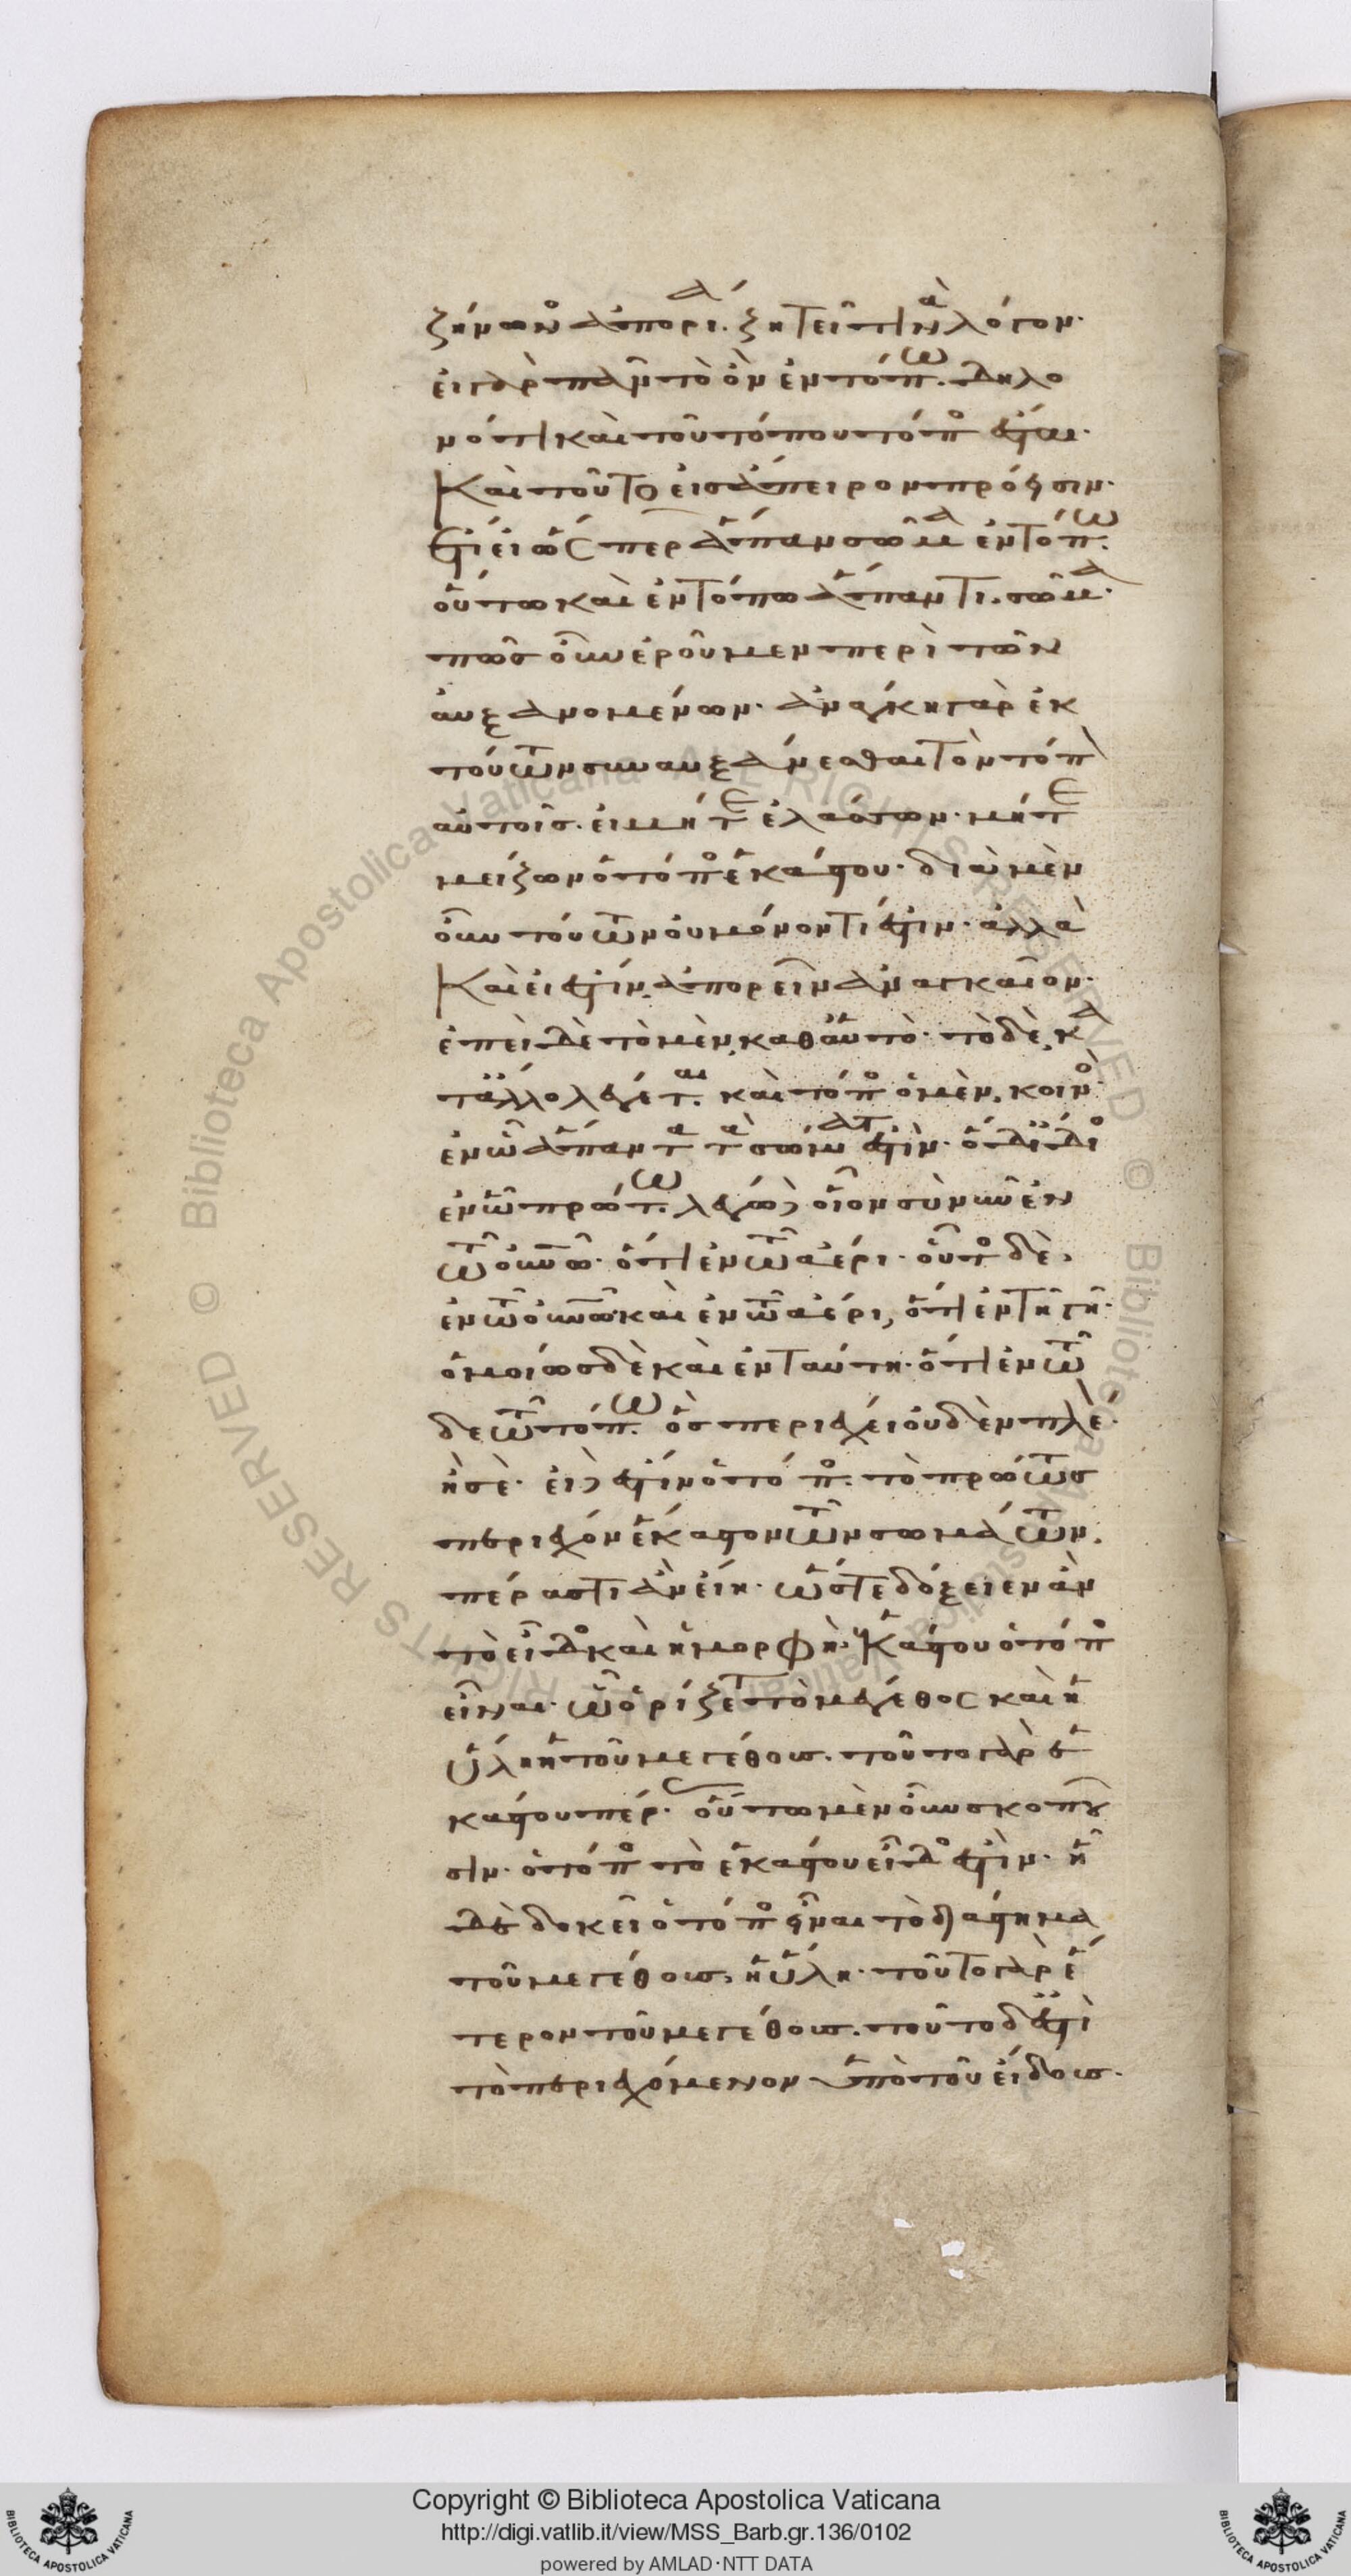 ζήνων(ος) ἀπορία. ζητεῖ τινὰ λόγον·
εἰ γὰρ πᾶν τὸ ὂν ἐν τόπω. δηλο
νότι καὶ τοῦ τόπου τόπος ἔσται·
Καὶ τοῦτο εἰς ἄπειρον πρόεισιν·
ἔτι εἰ ὥσπερ ἅπαν σῶμα ἐν τόπω.
οὕτω καὶ ἐν τόπω ἅπαντι. σῶμα·
πῶς οὖν ἐροῦμεν περὶ τῶν
αὐξανομένων· ἀνάγκη γὰρ ἐκ
τούτων συναυξάνεσθαι τὸν τόπον
αὐτοῖς. εἰ μήτε ἐλάσσων· μήτε
μείζων ὁ τόπος ἑκάστου· διὰ μὲν
οὖν τούτων οὐ μόνον τί ἐστιν· ἀλλὰ
Καὶ εἰ ἔστιν, ἀπορεῖν ἀναγκαῖον·
ἐπεὶ δὲ τὸ μὲν, καθ' αὑτὸ· τὸ δὲ, κατ
τ' ἄλλο λέγεται. καὶ τόπος ὁ μὲν, κοινὸς·
ἐν ᾧ ἅπαντα τὰ σώματ ἐστὶν· ὁ δ' ἴδιος
ἐν ᾧ πρώτω. λέγω οἷον σὺ νῦν ἐν
τῶ οὐνῶ· ὅτι ἐν τῶ ἀέρι· οὗτος δὲ,
ἐν τῶ οὐνῶ· καὶ ἐν τῶ ἀέρι, ὅτι ἐν τῆ γῆ·
ὁμοίως δὲ καὶ ἐν ταύτη· ὅτι ἐν τῶ
δε τῶ τόπω. ὃς περιέχει οὐδὲν πλέ·
ἢ σὲ· εἰ ἐστὶν ὁ τόπος. τὸ πρώτως
περιέχον ἕκαστον τῶν σωμάτων.
πέρας τι ἂν εἴη· ὥστε δόξειεν ἂν
τὸ εἶδος καὶ ἡ μορφὴ. ἑκάστου ὁ τόπος
εἶναι· ὧ ὁρίζεται τὸ μέγεθος καὶ ἡ
ὕλη ἡ τοῦ μεγέθους. τοῦτο γὰρ ἑ
κάστου πέρας· οὕτω μὲν οὖν σκοποῦ
σιν· ὁ τόπος τὸ ἑκάστου εἶδος ἐστὶν· ἧ
δὲ δοκεῖ ὁ τόπος εἶναι τὸ διάστημα
τοῦ μεγέθους, ἡ ὕλη· τοῦτο γὰρ ἕ
τερον τοῦ μεγέθους. τοῦτο δ' ἐστὶ
τὸ περιεχόμενον ὑπὸ τοῦ εἴδους·
Copyright © Biblioteca Apostolica Vaticana
http://digi.vatlib.it/view/MSS_Barb.gr.136/0102
powered by AMLAD·NTT DATA